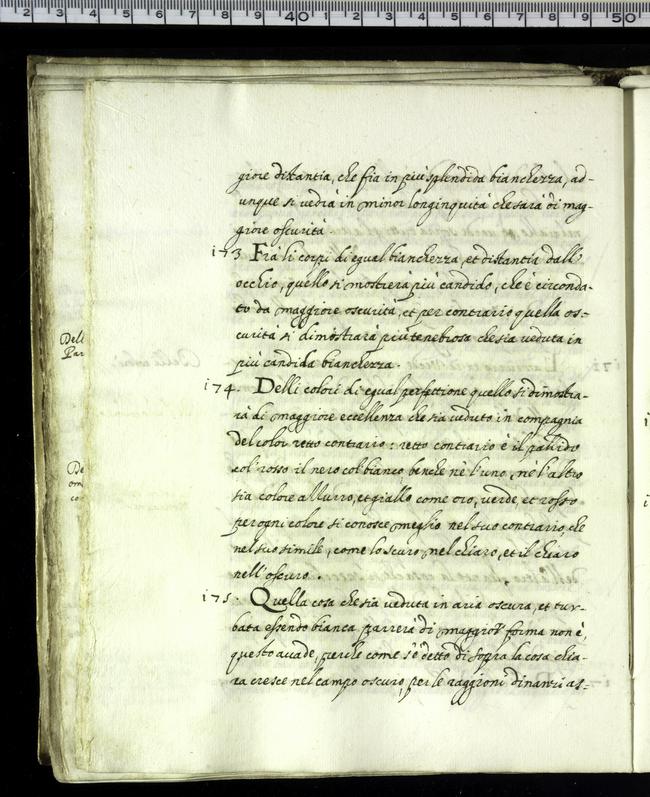 giore distantia, che fia in più splendida bianchezza, ad-
unque si vedrà in minor longinquità che sarà di mag-
giore oscurità.
173 Frà li corpi di egual bianchezza, et distantia dall'
occhio, quello si mostrerà più candido, che è circonda-
to da maggiore oscurità, et per contrario quella os-
curità si dimostrarà più tenebrosa che sia veduta in
più candida bianchezza.
174. Delli colori di egual perfettione quello si dimostra-
rà di maggiore eccellenza che sia veduto in compagnia
del color retto contrario: retto contrario è il pallido
col rosso il nero col bianco, benche nè l'uno, nè l'altro
sia colore azzurro, et giallo come oro, verde, et rosso
per ogni colore si conosce meglio nel suo contrario, che
nel suo simile, come lo scuro nel chiaro, et il chiaro
nell'oscuro.
175. Quella cosa che sia veduta in aria oscura, et tur-
bata essendo bianca parrerà di maggior forma non è,
questo accade, perche come s'è detto di sopra la cosa chia-
ra cresce nel campo oscuro, per le raggioni dinanzi as-
Dell
Par
De
om
co